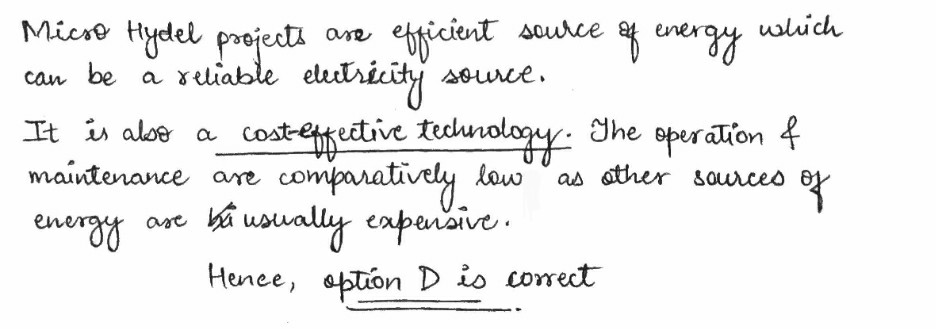 Micro Hydel projects are efficient source of energy which
can be a reliable electricity source.
It is also a cost-effective technology. The operation &
maintenance are comparatively low as other sources of
energy are usually expensive.
Hence, option D is correct